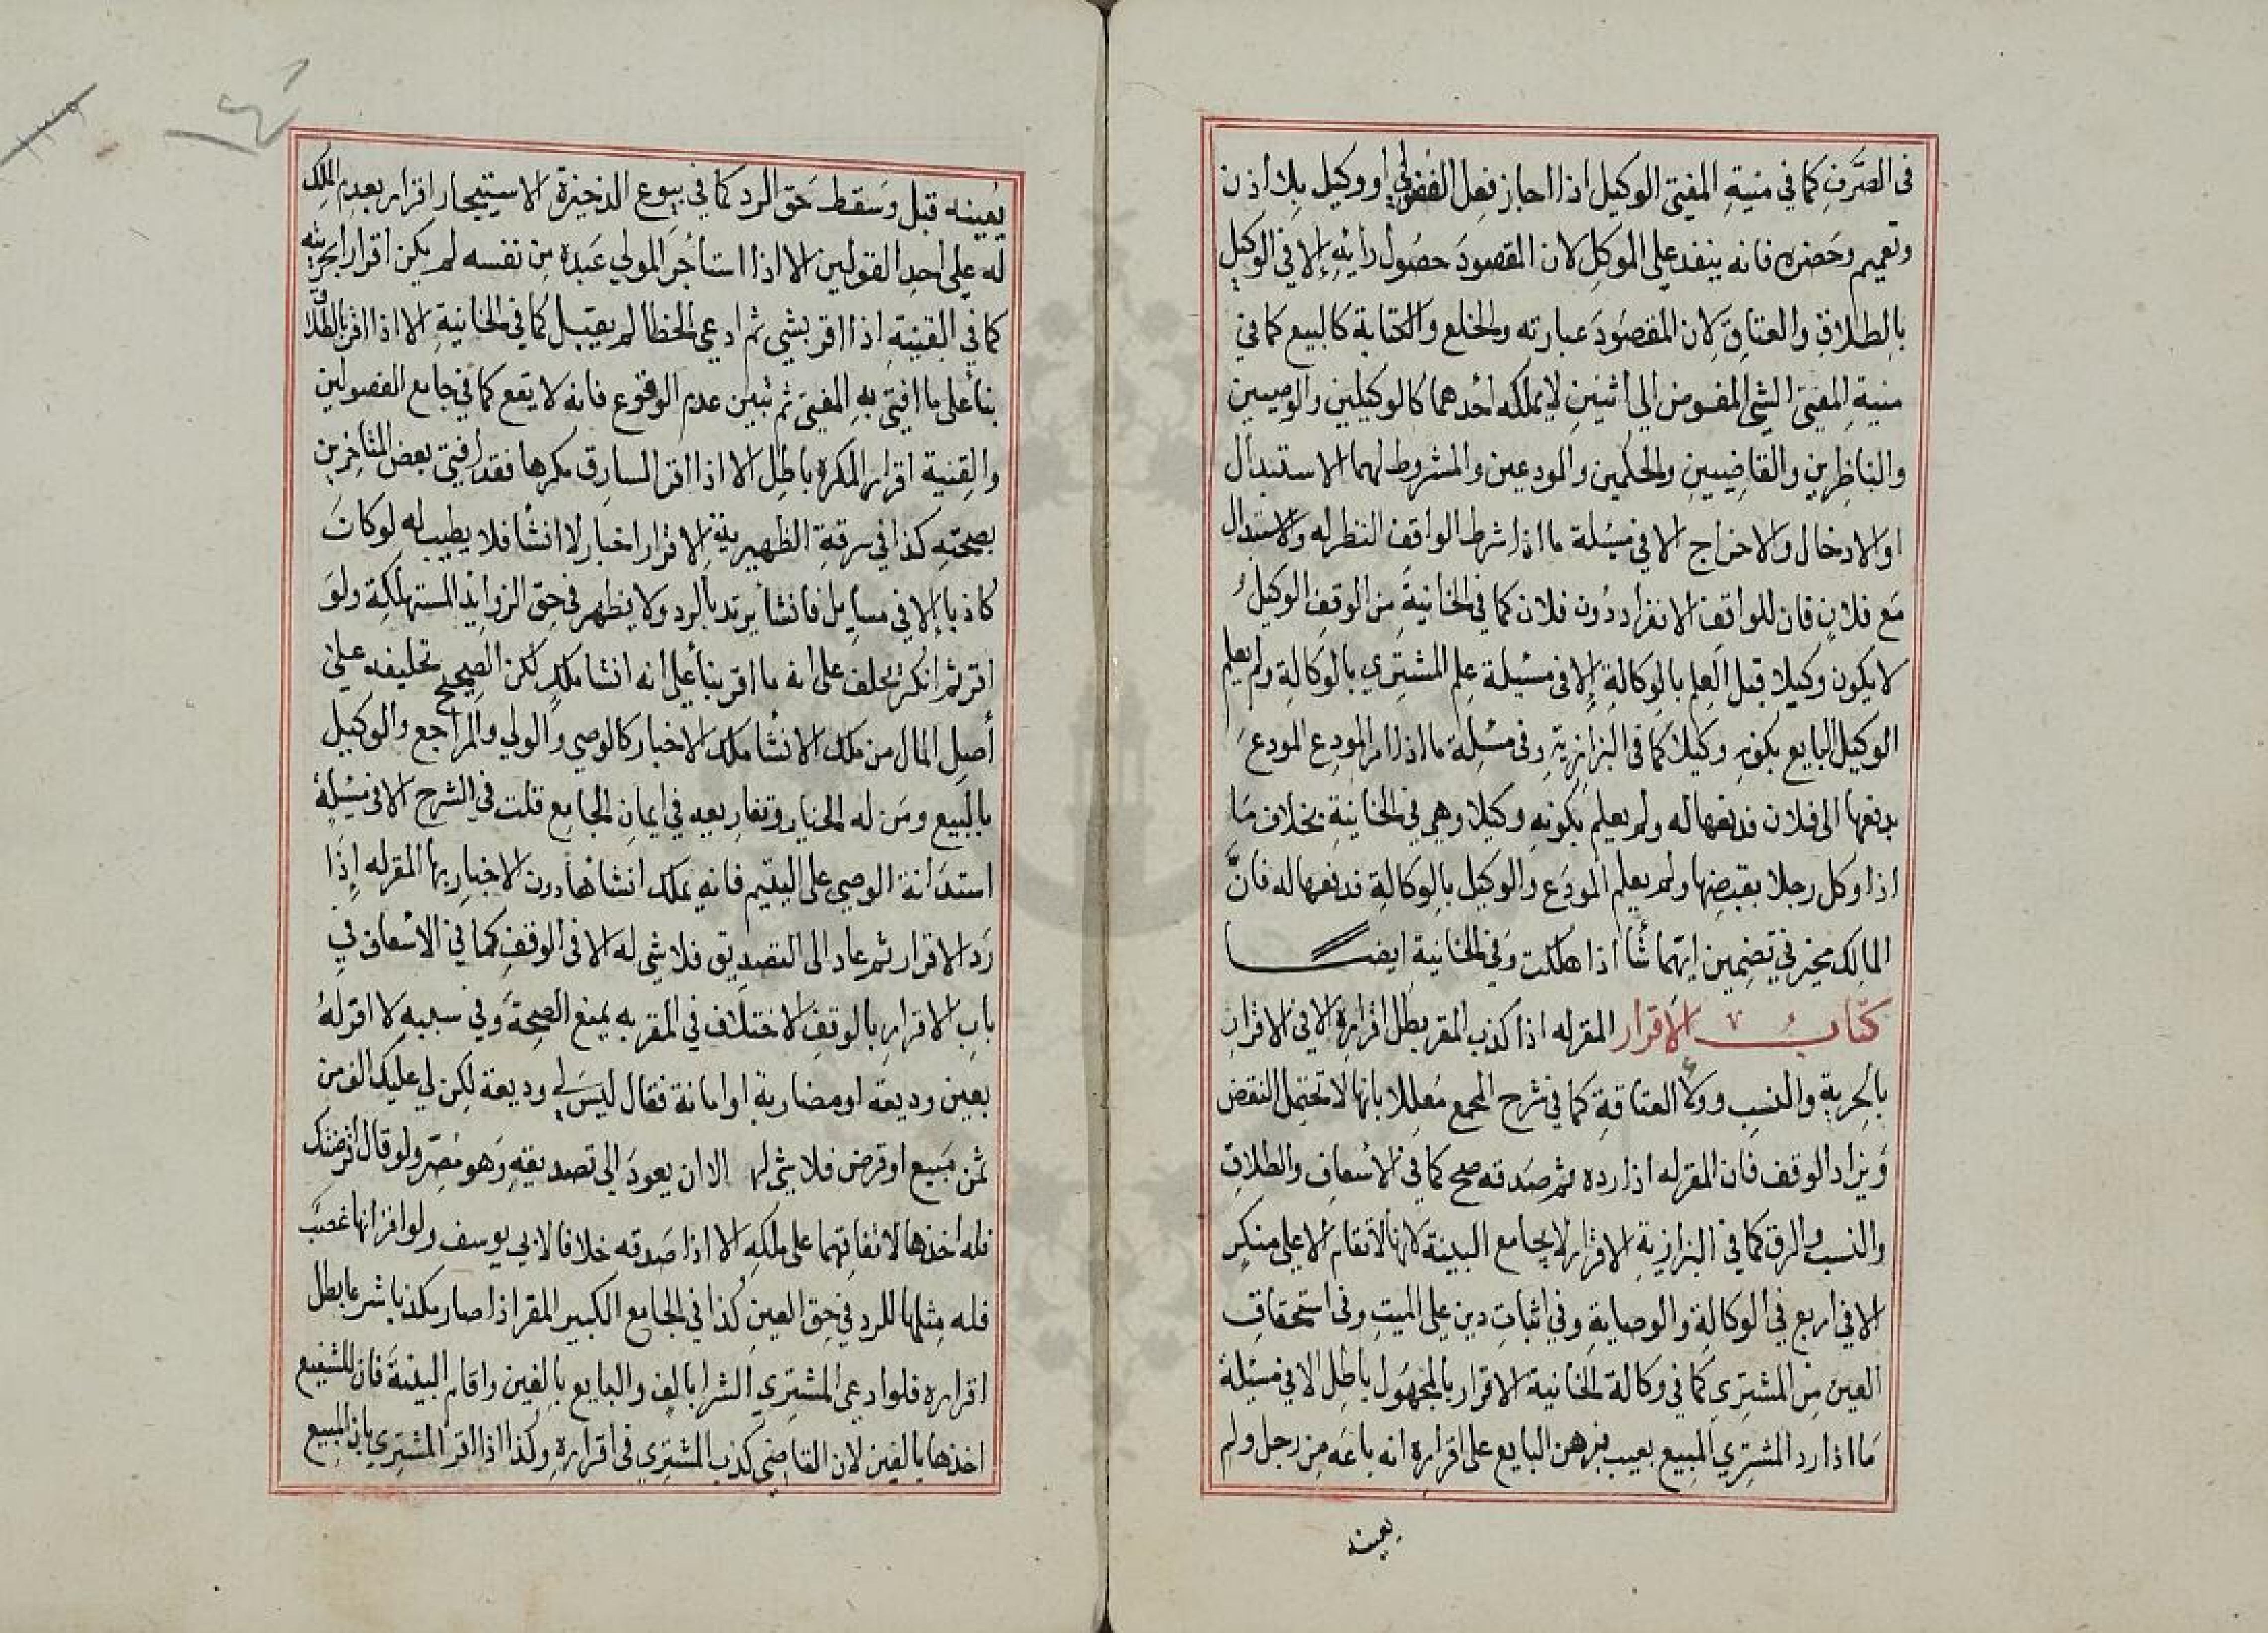 فى الصَّرفِ كما في منيةِ المفتي الوكيل اذا اجاز فعل الفضولي او وكيل بلا اذن
وتعميم وحَضره فانه ينفد على الموكل لان المقصودَ حصُول رأيهِ إلا في الوكيلِ
بالطلاقِ والعتاقِ لان المقصوُدَ عبارته والخلع والكتابة كالبيع كما في
منيةِ المفتي الشئ المفوض الى اثنين لا يملكه احدهما كالوكيلين والوصيين
والناظرين والقاضيين والحكمين والمودعين والمشروط لهما الاستبدال
او الادخال والاخراج الا في مسئلة ما اذا شرط الواقف النظر له والاستبدال
مَع فلانٍ فان للواقف الانفراد دُون فلان كما في الخانيةَ من الوقفِ الوكيلُ
لا يكون وكيلا قبل العلم بالوكالةِ إلا فى مسئلة علم المشتري بالوكالةِ ولم يعلم
الوكيل البايع بكونهِ وكيلا كما فى البزازيةِ وفى مسئلة ما اذا امر المودِع المودعَ
بدفعها الى فلان فدفعها له ولم يعلم بكونهِ وكيلا وهي في الخانيةِ بخلاف مَا
اذا وكل رجلا بقبضها ولم يعلم المودَع والوكيل بالوكالةِ فدفعها له فانَّ
المالك مخير في تضمين ايهما شَأ اذا هلكت وَفي الخانيةِ ايضا
كتابُ الاقرار المقر له اذا كذب المقر بطل اقراره الا في الاقرارِ
بالحريةِ والنسبِ وولاء العتاقةِ كما في شرح المجمع مُعللا بانها لا تحتمل النقض
وَيزاد الوقف فان المقر له اذا رده ثم صَدقه صح كما في الاسعافِ والطلاقِ
والنسبِ والرق كما في البزازيةِ الاقرار لا يجامع البينة لانها لا تقام الا على منكرٍ
الا في اربع في الوكالةِ والوصايةِ وفي اثباتِ دين على الميتِ وفى استحقاقِ
العين مِن المشترِي كما في وكالة الخانية الاقرار بالمجهُول باطل الا في مسئلة
مَا اذا رد المشتري المبيع بعيب فبرهن البايع على اقراره انه باعَه مِن رجل ولم
يعينه
يُعينه قبل وَسقط حَق الرد كما في بيوع الذخيرة الاستيجار اقرار بعدم الملك
له على احدِ القولين الا اذا استأجرَ المولى عَبده مِن نفسه لم يكن اقرارا بحريته
كما في القنيةِ اذا اقر بشي ثم ادعى الخطا لم يقبل كما في الخانيةِ الا اذا اقر بالطلاق
بنأ على ما افتى بهِ المفتي ثم تبين عدم الوقوع فانه لا يقع كما في جامع الفصولين
والقنية اقرار المكره باطل الا اذا اقر السارق مكرها فقد افتى بعض المتاخرين
بصحتهِ كذا في سرقةِ الظهيرية الاقرار اخبار لا انشأ فلا يطيب له لوكانَ
كاذبا إلا في مسايل فانشأ يرتد بالرد ولا يظهر في حق الزوايد المستهلكةِ ولوَ
اقر ثم انكر يحلف على انه ما اقر بنأ على انه انشا ملك لكن الصحيح تحليفه على
أصل المال من ملك الانشأ ملك الاخبار كالوصي والولي والمراجع والوكيل
بالبيع ومَن له الخيار وتفاريعه في ايمانِ الجامع قلت في الشرح الا في مسئلةِ
استدَانة الوصي على اليتيم فانه يملك انشاءَها دون الاخبارِ بها المقر له إذَا
رَد الاقرار ثم عاد الى التصديق فلا شى له الا فى الوقفِ كما في الاسعاف في
بابِ الاقرارِ بالوقفِ الاختلاف في المقر به يمنع الصحةَ وفي سببهِ لا اقر لهُ
بعين وديعة او مضاربة او امانة فقال ليسَ لي وديعة لكن لي عليك الف من
ثمن مَبيع او قرض فلا شئ له الا ان يعودَ الى تصديقهِ وَهو مُصرّ ولو قال اقرضتك
فله اخذها لاتفاقهما على ملكهِ الا اذا صَدقه خلافا لابي يوسف ولو اقر انها غصب
فله مِثلها للرد في حق العينِ كذا في الجامع الكبير المقر اذا صار مكذبا شرعا بطل
اقراره فلو ادعى المشترِي الشرا بالف والبايع بالفين واقام البينةَ فان للشفيع
اخذها بالفين لان القاضي كذب المشترِي فى اقراره وكذا اذا اقر المشتري بان المبيع